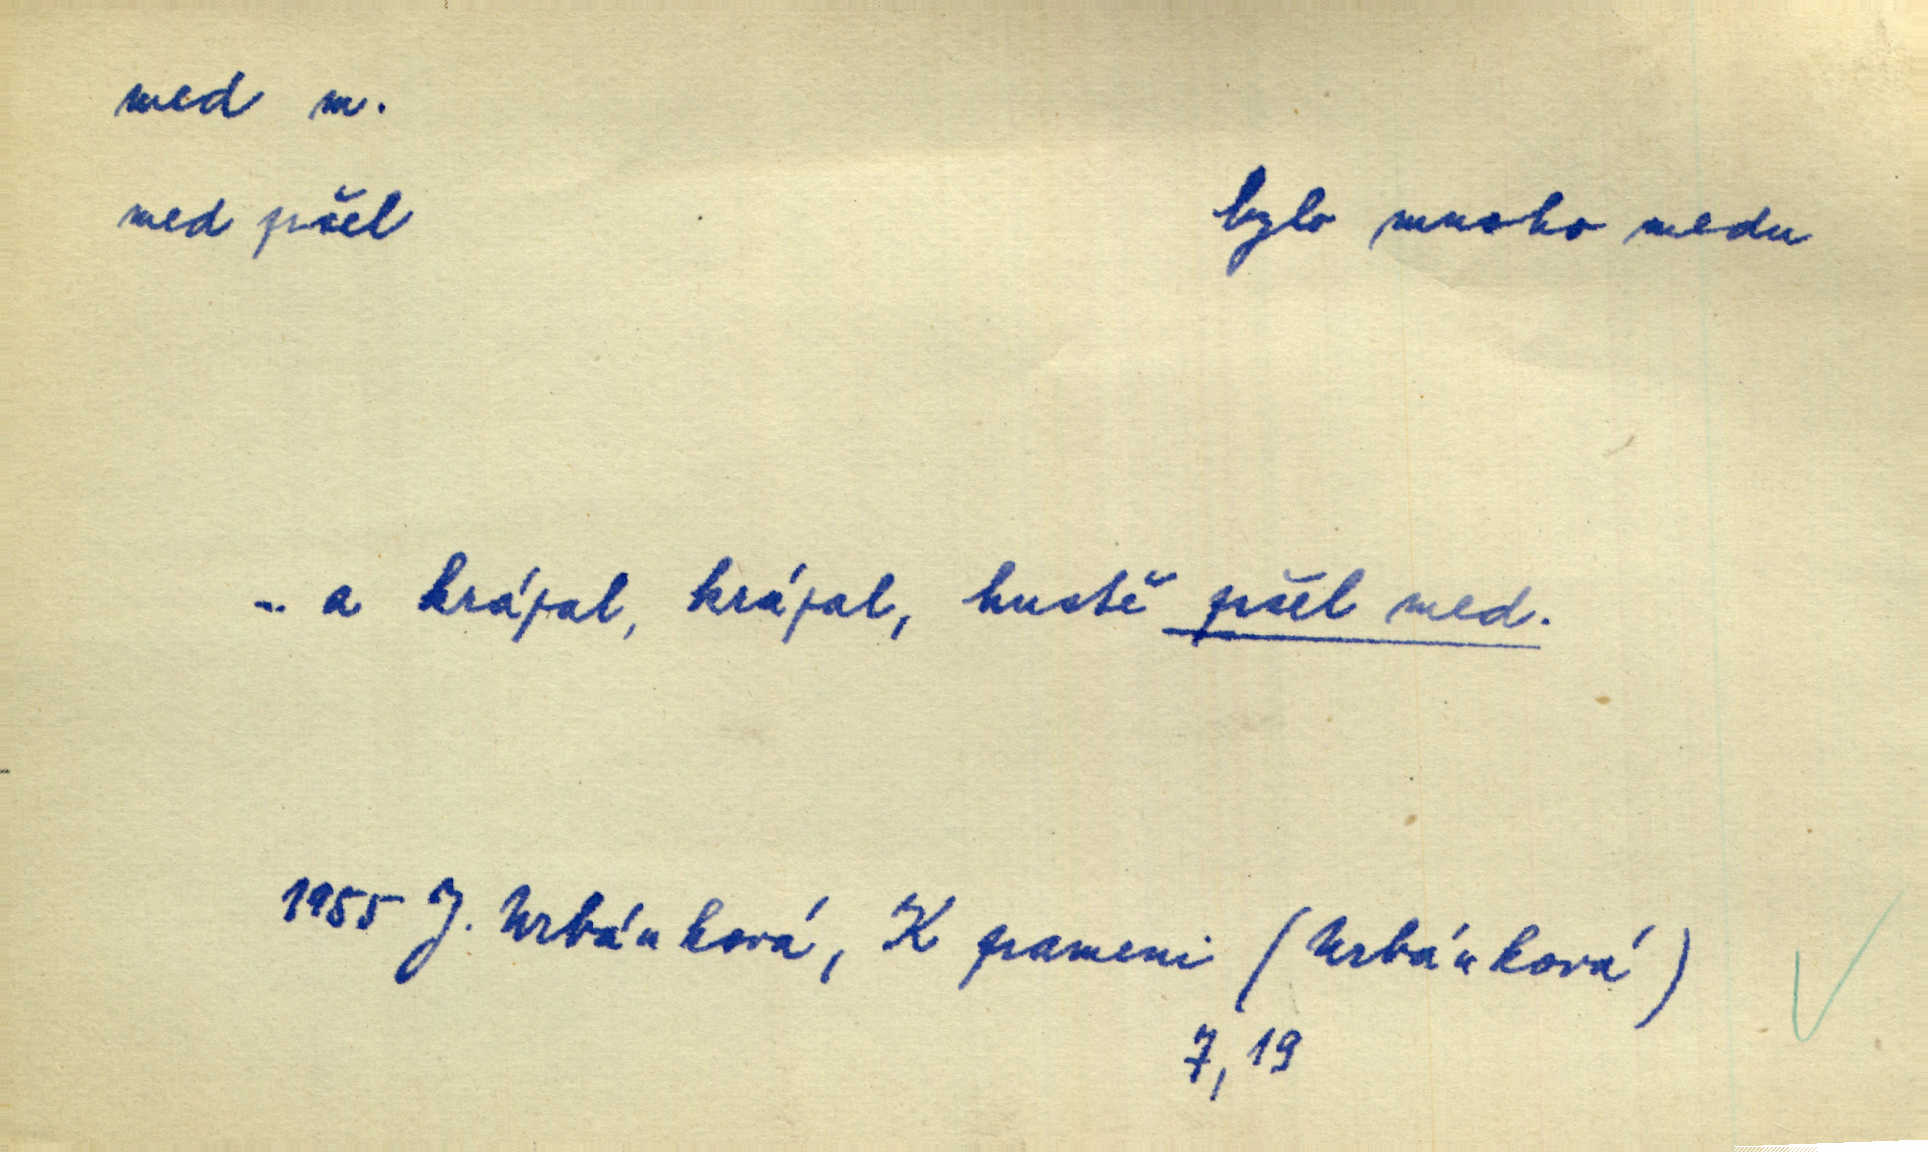 med m.
med pšel
bylo mnoho medu
.. a krájal, krájal, hustě pšel med.
1955 J. Urbánková, K prameni (Urbánková)
7, 19